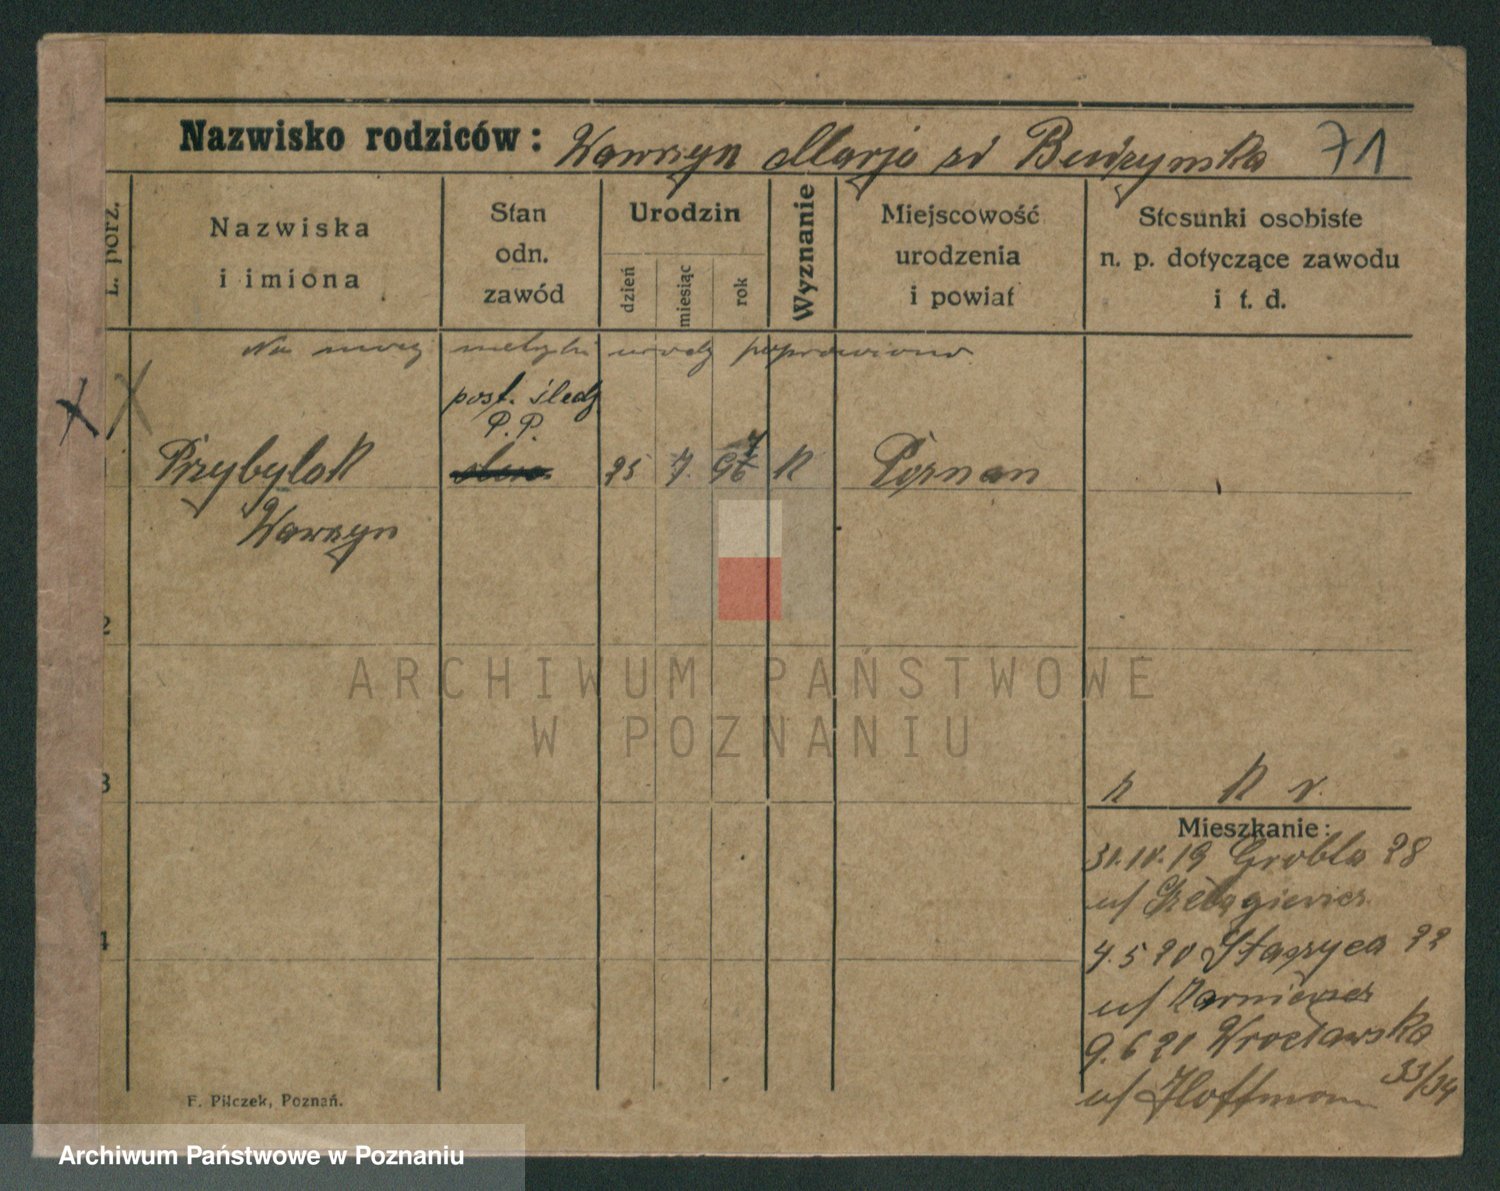 Nazwisko rodziców: Wawrzyn Marja zd Budzyńska 71
L. porz.
Nazwiska i imiona
Stan odn. zawód
Urodzin
dzień
miesiąc
rok
Wyznanie
Miejscowość urodzenia i powiat
Stosunki osobiste n. p. dotyczące zawodu i t. d.
Na mocy metryki urodz poprawiono
X X
post. śledz
P. P.
Przybylak
25 7. 96 7 K Poznan
Wawrzyn
2
3
4
ARCHIWUM PAŃSTWOWE
W POZNANIU
Mieszkanie:
Grobla 28
u/
4. 5 20 Staszyca 22
u/
9. 6 20 Wrocławska
33/34
u/ Hoffmann
F. Pilczek, Poznań.
Archiwum Państwowe w Poznaniu